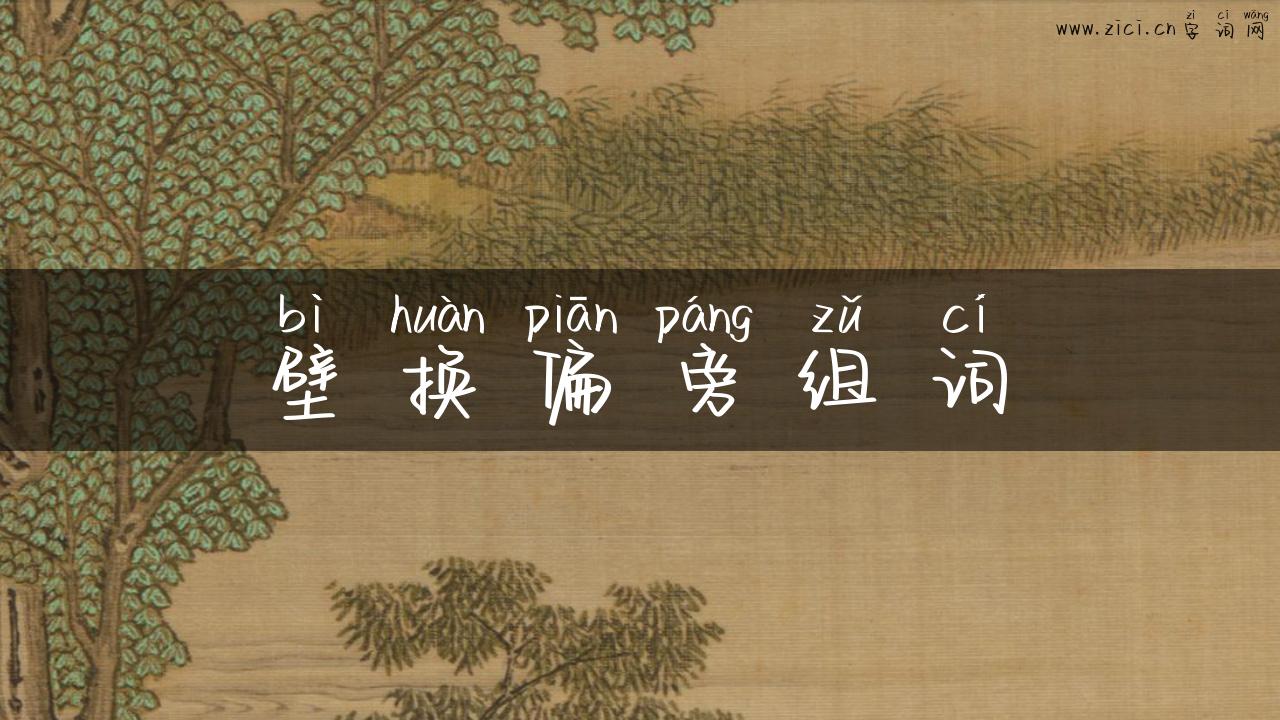 zì cí wǎng
www.zici.cn字词网
bì huàn piān páng zǔ cí
壁换偏旁组词